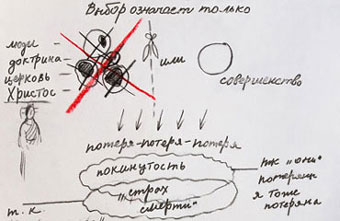 Выбор означает только
люди
доктрина
церковь
Христос
или
совершенство
потеря-потеря-потеря
покинутость
„страх
смерти"
т.к.
тк „они"
потеряны
я тоже
потеряна